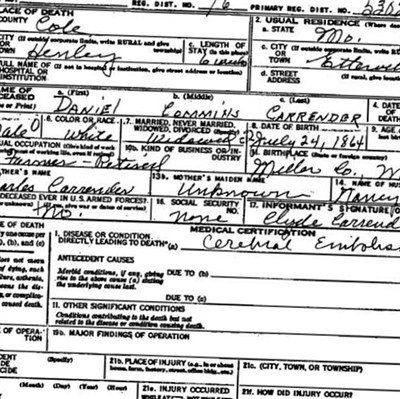 REG. DIST. NO. 76 PRIMARY REG. DIST. NO.
PLACE OF DEATH
COUNTY Cole
2. USUAL RESIDENCE (Where dece
a. STATE Mo.
CITY (If outside corporate limits, write RURAL and give township)
OR TOWN Henley
c. LENGTH OF STAY (in this place)
c. CITY (If outside corporate limits, write RU
OR TOWN
FULL NAME OF (If not in hospital or institution, give street address or location)
HOSPITAL OR INSTITUTION
d. STREET ADDRESS (If rural, give
NAME OF DECEASED
or Print)
a. (First) DANIEL
b. (Middle)
c. (Last) CARRENDER
4. DATE OF DEATH
6. COLOR OR RACE White
7. MARRIED, NEVER MARRIED, WIDOWED, DIVORCED (Specify) Widowed
8. DATE OF BIRTH July 24, 1864
9. AGE
USUAL OCCUPATION (Give kind of work
of working life, even if retired)
Farmer - Retired
10b. KIND OF BUSINESS OR INDUSTRY
11. BIRTHPLACE (State or foreign country)
Miller Co., M
'S NAME
Carrender
13b. MOTHER'S MAIDEN NAME
Unknown
14. NAME OF HUS
Nancy
DECEASED EVER IN U.S. ARMED FORCES?
yes, give war or dates of service)
No.
16. SOCIAL SECURITY NO.
None
17. INFORMANT'S SIGNATURE O
Clyde Carrend
OF DEATH
MEDICAL CERTIFICATION
one cause per
(b), and (c)
I. DISEASE OR CONDITION
DIRECTLY LEADING TO DEATH* (a) Cerebral Embolis
does not mean
of dying, such
ure, asthenia,
eans the dis-
or complica-
caused death.
ANTECEDENT CAUSES
Morbid conditions, if any, giving
rise to the above cause (a) stating
the underlying cause last.
DUE TO (b)
DUE TO (c)
II. OTHER SIGNIFICANT CONDITIONS
Conditions contributing to the death but not
related to the disease or condition causing death.
OF OPERA-
TION
19b. MAJOR FINDINGS OF OPERATION
(Specify)
21b. PLACE OF INJURY (e.g., in or about
home, farm, factory, street, office bldg., etc.)
21c. (CITY, TOWN, OR TOWNSHIP)
(Month) (Day) (Year) (Hour)
21e. INJURY OCCURRED
21f. HOW DID INJURY OCCUR?